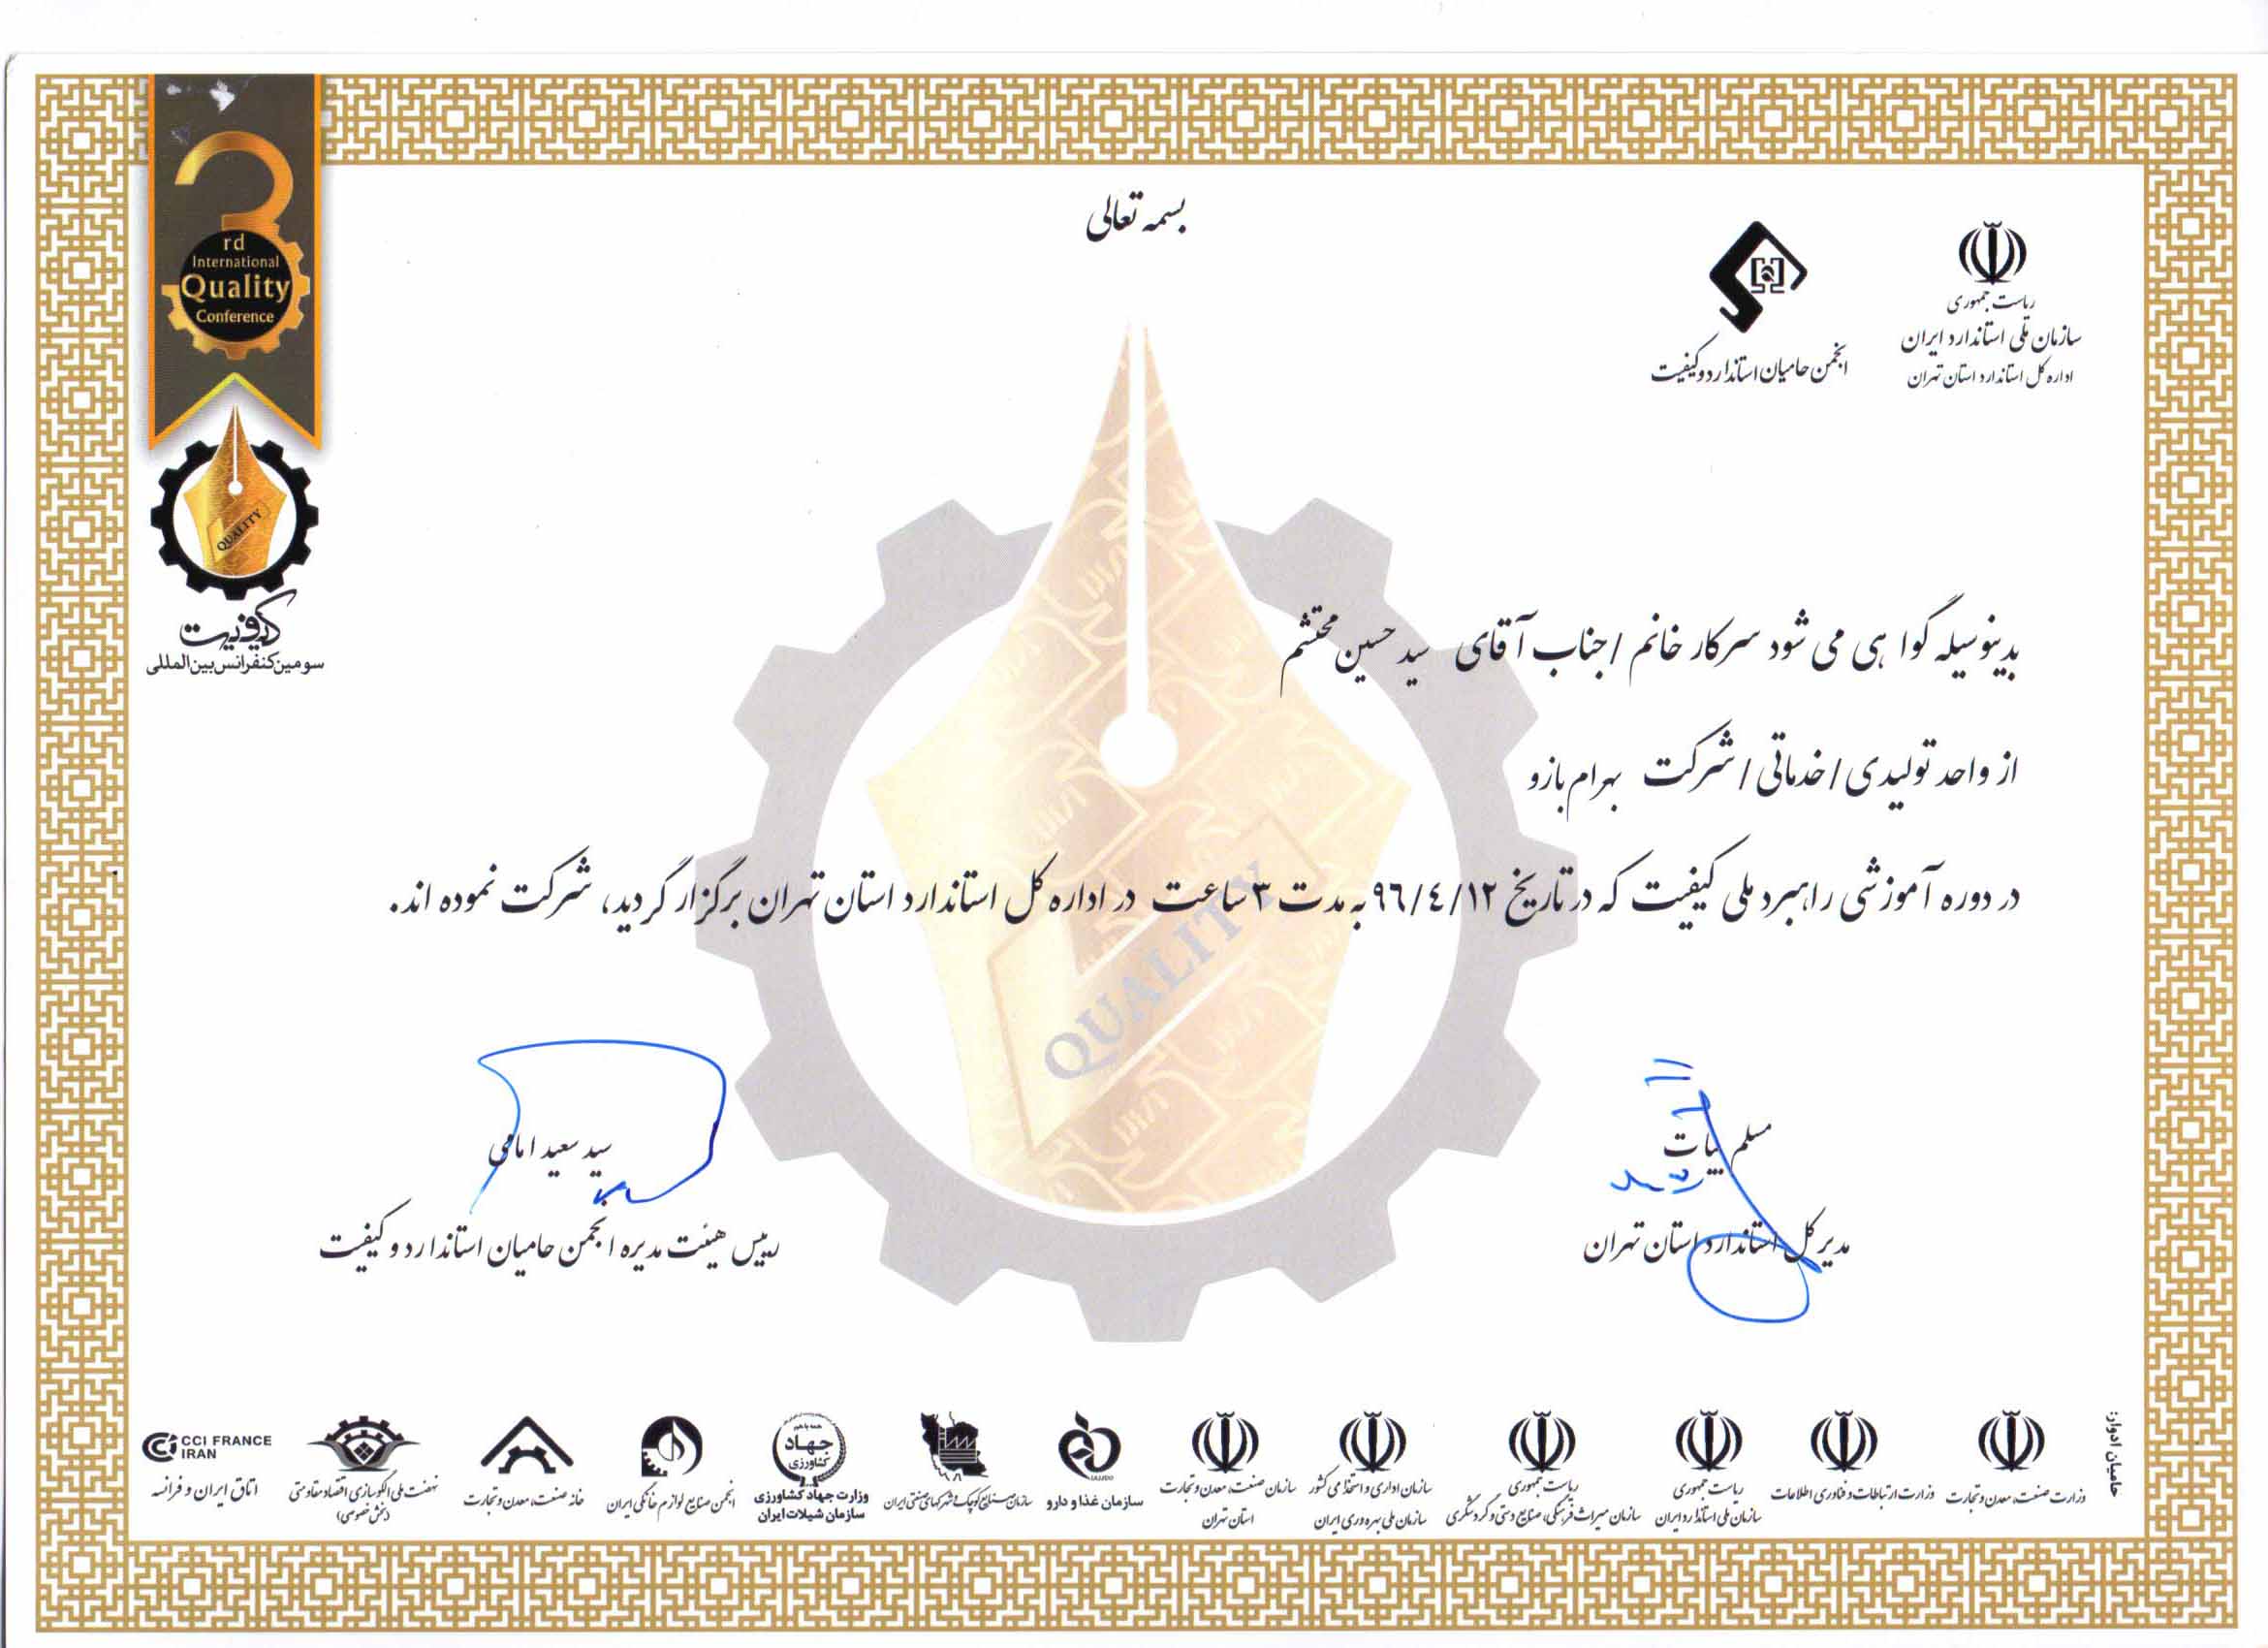 بسمه تعالی
ریاست جمهوری
سازمان ملی استاندارد ایران
اداره کل استاندارد استان تهران
انجمن حامیان استاندارد و کیفیت
3
rd
International
Quality
Conference
QUALITY
کیفیت
سومین کنفرانس بین‌المللی
بدینوسیله گواهی می شود سرکار خانم / جناب آقای سید حسین محتشم
از واحد تولیدی / خدماتی / شرکت بهرام بازو
در دوره آموزشی راهبرد ملی کیفیت که در تاریخ ۹۶/۴/۱۲ به مدت ۳ ساعت در اداره کل استاندارد استان تهران برگزار گردید، شرکت نموده اند.
QUALITY
مسلم بیات
مدیر کل استاندارد استان تهران
سید سعید امامی
رییس هیئت مدیره انجمن حامیان استاندارد و کیفیت
حامیان ادوار:
وزارت صنعت، معدن و تجارت
وزارت ارتباطات و فناوری اطلاعات
ریاست جمهوری
سازمان ملی استاندارد ایران
ریاست جمهوری
سازمان میراث فرهنگی، صنایع دستی و گردشگری
سازمان اداری و استخدامی کشور
سازمان ملی بهره وری ایران
سازمان صنعت، معدن و تجارت
استان تهران
سازمان غذا و دارو
سازمان صنایع کوچک و شهرکهای صنعتی ایران
جهاد
کشاورزی
وزارت جهاد کشاورزی
سازمان شیلات ایران
انجمن صنایع لوازم خانگی ایران
خانه صنعت، معدن و تجارت
نهضت ملی الگوسازی اقتصاد مقاومتی
(بخش خصوصی)
CCI FRANCE
IRAN
اتاق ایران و فرانسه